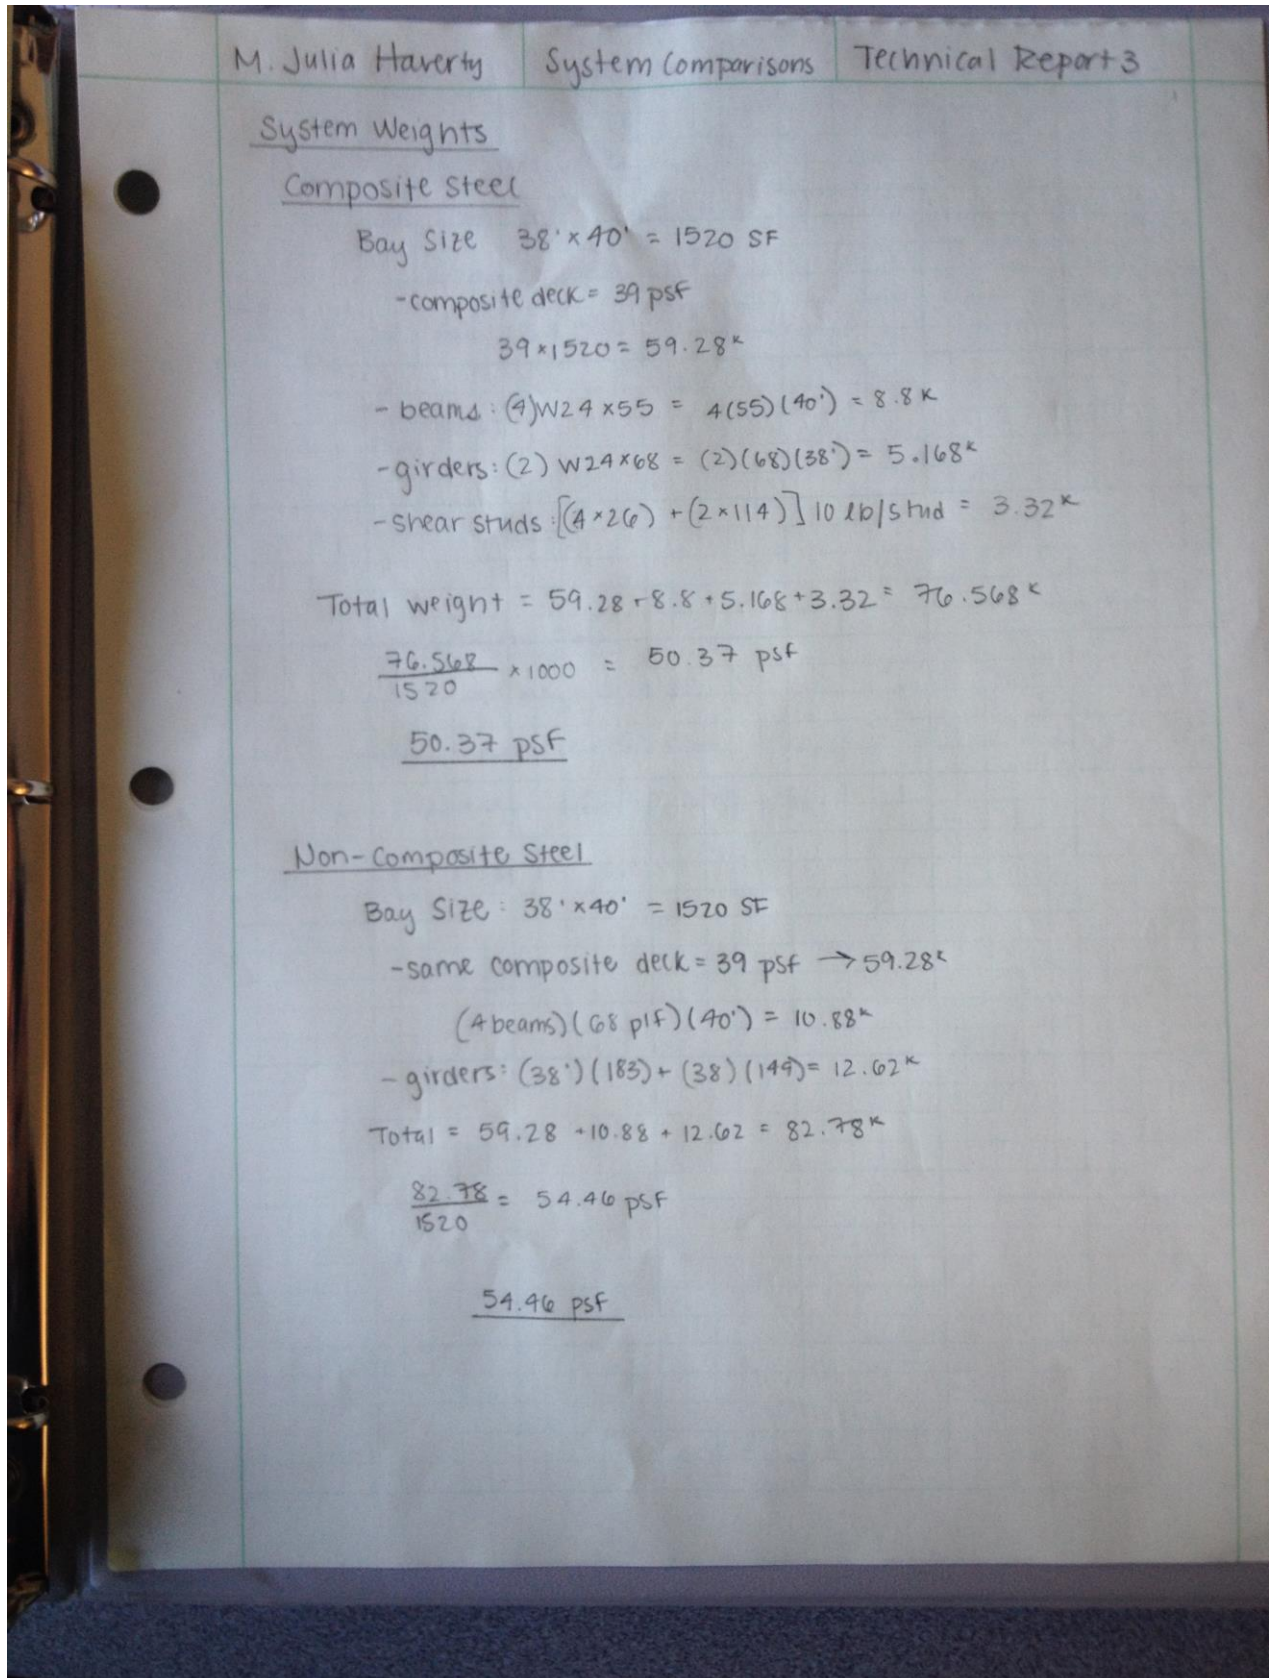 M. Julia Haverty System Comparisons Technical Report 3
System Weights
Composite Steel
Bay Size 38' x 40' = 1520 SF
- composite deck = 39 psf
39 x 1520 = 59.28ᴷ
- beams: (4) W24 x 55 = 4(55)(40') = 8.8 K
- girders: (2) W24 x 68 = (2)(68)(38') = 5.168ᴷ
- shear studs: [(4 x 26) + (2 x 114)] 10 lb/stud = 3.32ᴷ
Total weight = 59.28 + 8.8 + 5.168 + 3.32 = 76.568ᴷ
76.568
1520
x 1000 = 50.37 psf
50.37 psf
Non-Composite Steel
Bay Size: 38' x 40' = 1520 SF
- same composite deck = 39 psf → 59.28ᴷ
(4 beams)(68 plf)(40') = 10.88ᴷ
- girders: (38')(183) + (38)(149) = 12.62ᴷ
Total = 59.28 + 10.88 + 12.62 = 82.78ᴷ
82.78
1520
= 54.46 psf
54.46 psf